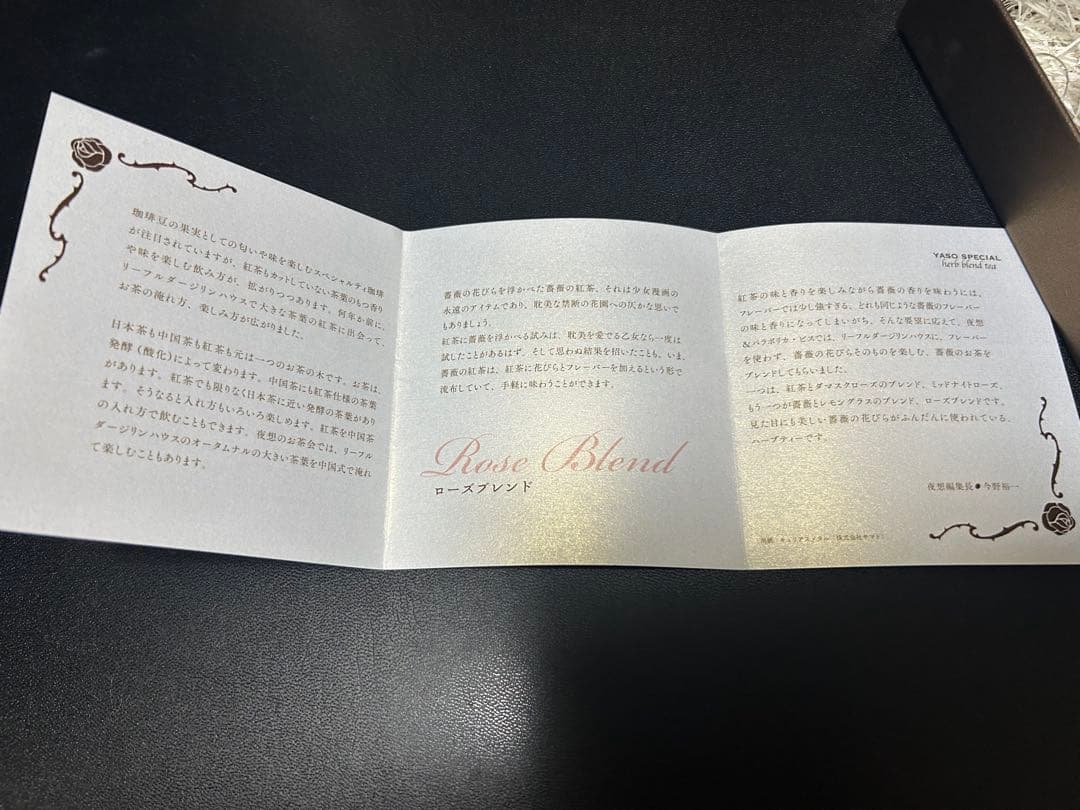 珈琲豆の果実としての匂いや味を楽しむスペシャルティ珈琲
が注目されていますが、紅茶もカットしていない茶葉のもつ香り
や味を楽しむ飲み方が、拡がりつつあります。何年か前に、
リーフルダージリンハウスで大きな茶葉の紅茶に出会って、
お茶の淹れ方、楽しみ方が広がりました。
日本茶も中国茶も紅茶も元は一つのお茶の木です。お茶は、
発酵(酸化)によって変わります。中国茶にも紅茶仕様の茶葉
があります。紅茶でも限りなく日本茶に近い発酵の茶葉があり
ます。そうなると入れ方もいろいろ楽しめます。紅茶を中国茶
の入れ方で飲むこともできます。夜想のお茶会では、リーフル
ダージリンハウスのオータムナルの大きい茶葉を中国式で淹れ
て楽しむこともあります。
薔薇の花びらを浮かべた薔薇の紅茶、それは少女漫画の
永遠のアイテムであり、耽美な禁断の花園への仄かな思いで
もありましょう。
紅茶に薔薇を浮かべる試みは、耽美を愛でる乙女なら一度は
試したことがあるはず。そして思わぬ結果を招いたことも。いま、
薔薇の紅茶は、紅茶に花びらとフレーバーを加えるという形で
流布していて、手軽に味わうことができます。
Rose Blend
ローズブレンド
YASO SPECIAL
herb blend tea
紅茶の味と香りを楽しみながら薔薇の香りを味わうには、
フレーバーでは少し強すぎる、どれも同じような薔薇のフレーバー
の味と香りになってしまいがち、そんな要望に応えて、夜想
&パラボリカ・ビスでは、リーフルダージリンハウスに、フレーバー
を使わず、薔薇の花びらそのものを楽しむ、薔薇のお茶を
ブレンドしてもらいました。
一つは、紅茶とダマスクローズのブレンド、ミッドナイトローズ、
もう一つが薔薇とレモングラスのブレンド、ローズブレンドです。
見た目にも美しい薔薇の花びらがふんだんに使われている、
ハーブティーです。
夜想編集長●今野裕一